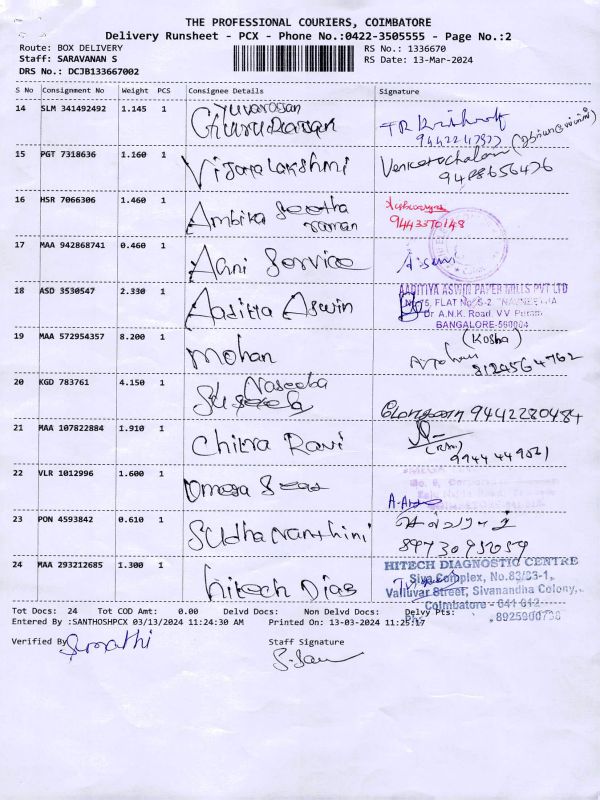 THE PROFESSIONAL COURIERS, COIMBATORE
Delivery Runsheet - PCX - Phone No.:0422-3505555 - Page No.:2
Route: BOX DELIVERY
RS No.: 1336670
Staff: SARAVANAN S
RS Date: 13-Mar-2024
DRS No.: DCJB133667002
S No Consignment No Weight PCS Consignee Details Signature
14 SLM 341492492 1.145 1
9442247977
15 PGT 7318636 1.160 1 Vijayalakshmi Venketachalam
9488656476
16 HSR 7066306 1.460 1 Ambika Seetha
raman
9443370148
17 MAA 942868741 0.460 1 Aani Service
18 ASD 3530547 2.330 1 Aaditya Aswin
AADITIYA ASWIN PAPER MILLS PVT LTD
No.75, FLAT No. S-2,
Dr A.N.K. Road, V.V Puram
BANGALORE-560004
19 MAA 572954357 8.200 1 Mohan (Kosha)
8124564762
20 KGD 783761 4.150 1 Naseeba
9442280484
21 MAA 107822884 1.910 1 Chitra Ravi
9944449021
22 VLR 1012996 1.600 1 Omega Seas
23 PON 4593842 0.610 1 Sudhananthini
8973095059
24 MAA 293212685 1.300 1 hitech Dias
HITECH DIAGNOSTIC CENTRE
Siva Complex, No.83/83-1,
Valluvar Street, Sivanandha Colony,
Coimbatore - 641 012
8925900736
Tot Docs: 24 Tot COD Amt: 0.00 Delvd Docs: Non Delvd Docs: Delvy Pts:
Entered By :SANTHOSHPCX 03/13/2024 11:24:30 AM Printed On: 13-03-2024 11:25:17
Verified By Staff Signature